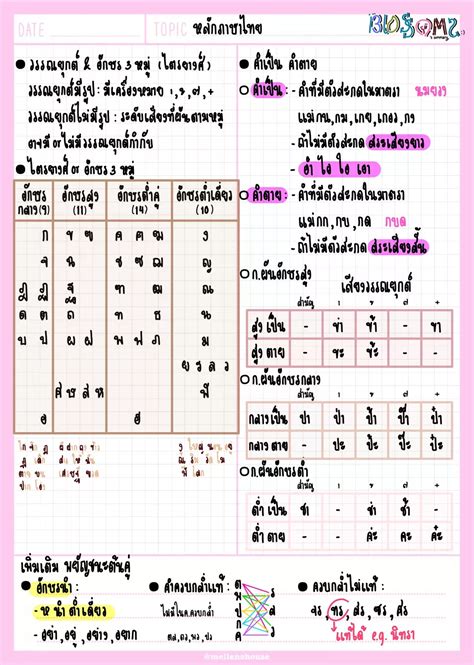 DATE
TOPIC หลักภาษาไทย
BLOSSOMZ
● วรรณยุกต์ & อักษร ๓ หมู่ (ไตรยางศ์)
วรรณยุกต์มีรูป : มีเครื่องหมาย ่, ้, ๊, ๋
วรรณยุกต์ไม่มีรูป : ระดับเสียงที่ผันตามหมู่
อาจมี or ไม่มีวรรณยุกต์กำกับ
● ไตรยางศ์ or อักษร ๓ หมู่
อักษรกลาง(9) อักษรสูง (11) อักษรต่ำคู่ (14) อักษรต่ำเดี่ยว (10)
ก ข ฃ ค ฅ ฆ ง
จ ฉ ช ซ ฌ ญ
ฎ ฏ ฐ ฑ ฒ ณ
ด ต ถ ท ธ น
บ ป ผ ฝ พ ฟ ภ ม
ย ร ล ว
ศ ษ ส ห ฬ
อ ฮ
● คำเป็น คำตาย
○ คำเป็น : - คำที่มีตัวสะกดในมาตรา นมยวง
แม่กน, กม, เกย, เกอว, กง
- ถ้าไม่มีตัวสะกด สระเสียงยาว
- อำ ไอ ใอ เอา
○ คำตาย : - คำที่มีตัวสะกดในมาตรา
แม่กก, กบ, กด กบด
- ถ้าไม่มีตัวสะกด สระเสียงสั้น
○ ก.ผันอักษรสูง เสียงวรรณยุกต์
สามัญ ่ ้ ๊ ๋
สูง เป็น - ข่า ข้า - ขา
สูง ตาย - ขะ ข้ะ - -
○ ก.ผันอักษรกลาง
สามัญ ่ ้ ๊ ๋
กลาง เป็น ปา ป่า ป้า ป๊า ป๋า
กลาง ตาย - ปะ ป้ะ ป๊ะ ป๋ะ
○ ก.ผันอักษรต่ำ
สามัญ ่ ้ ๊ ๋
ต่ำ เป็น ชา - ช่า ช้า -
ต่ำ ตาย - - ค่ะ คะ -
เพิ่มเติม พยัญชนะต้นคู่
● อักษรนำ :
- ห นำ ต่ำเดี่ยว
- อย่า, อยู่, อย่าง, อยาก
● คำควบกล้ำแท้ :
ไม่มีใน ค.ควบกล้ำ
● ควบกล้ำไม่แท้ :
จร, ทร, สร, ซร, ศร
แท้ได้ e.g. นิทรา